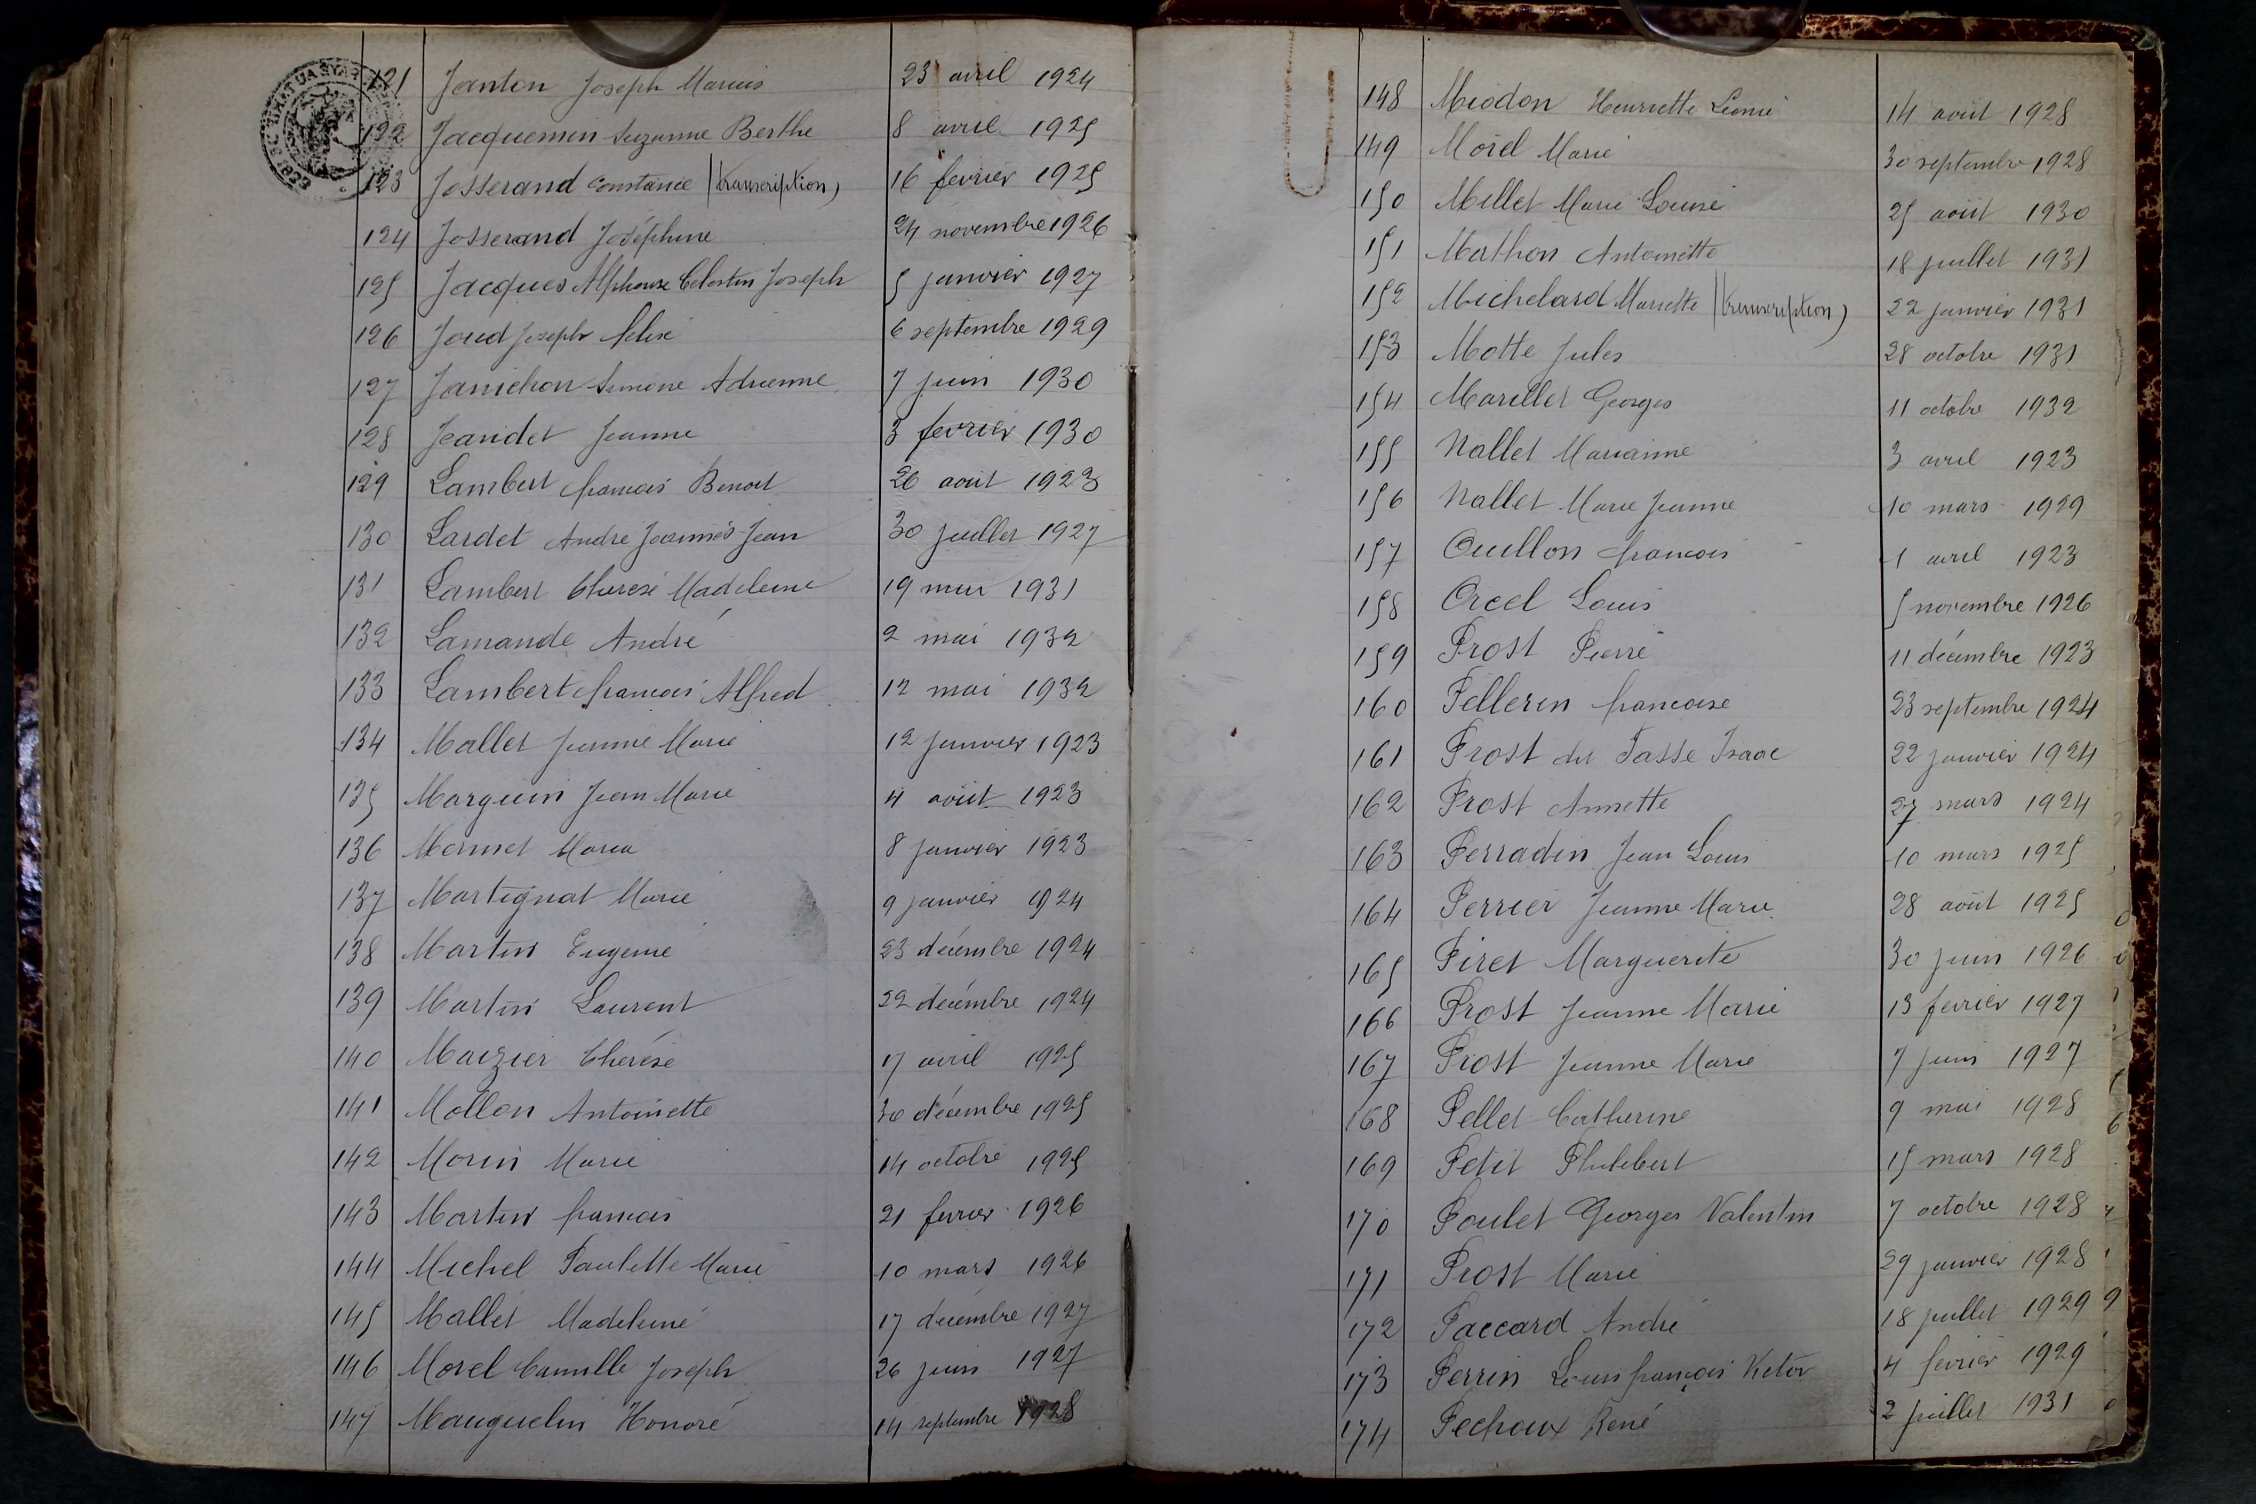 121 Janton Joseph Marius 23 avril 1924
122 Jacquemin Suzanne Berthe 8 avril 1925
123 Josserand Constance (transcription) 16 fevrier 1925
124 Josserand Joséphine 24 novembre 1926
125 Jacques Alphonse Celestin Joseph 5 janvier 1927
126 Joud Joseph 6 septembre 1929
127 Janichon Simone Adrienne 7 juin 1930
128 Jeandet Jeanne 3 fevrier 1930
129 Lambert francois Benoit 26 aout 1923
130 Lardet Andre Joannès Jean 30 juillet 1927
131 Lambert Therese Madeleine 19 mai 1931
132 Lamande André 2 mai 1932
133 Lambert francois Alfred 12 mai 1932
134 Mallet Jeanne Marie 12 janvier 1923
135 Marguin Jean Marie 4 août 1923
136 Mermet Maria 8 janvier 1923
137 Martignat Marie 9 janvier 1924
138 Martin Eugenie 23 décembre 1924
139 Martin Laurent 22 décembre 1924
140 Maizier Therèse 17 avril 1925
141 Mollon Antoinette 30 décembre 1925
142 Morin Marie 14 octobre 1925
143 Martin francois 21 fevrier 1926
144 Michel Paulette Marie 10 mars 1926
145 Mallet Madeleine 17 decembre 1927
146 Morel Camille Joseph 26 juin 1927
147 Mauguelin Honoré 14 septembre 1928
148 Miodon Henriette Léonie 14 août 1928
149 Morel Marie 30 septembre 1928
150 Millet Marie Louise 25 août 1930
151 Mathon Antoinette 18 juillet 1931
152 Michelard Mariette (transcription) 22 janvier 1931
153 Motte Jules 28 octobre 1931
154 Marillet Georges 11 octobre 1932
155 Nallet Marianne 3 avril 1923
156 Nallet Marie Jeanne 10 mars 1929
157 Ouillon francois 1 avril 1923
158 Orcel Louis 5 novembre 1926
159 Prost Pierre 11 décembre 1923
160 Pellerin francoise 23 septembre 1924
161 Prost dit Tasse Isaac 22 janvier 1924
162 Prost Annette 27 mars 1924
163 Perradin Jean Louis 10 mars 1925
164 Perrier Jeanne Marie 28 août 1925
165 Piret Marguerite 30 juin 1926
166 Prost Jeanne Marie 13 fevrier 1927
167 Prost Jeanne Marie 7 juin 1927
168 Pellet Catherine 9 mai 1928
169 Petit Philibert 15 mars 1928
170 Poulet Georges Valentin 7 octobre 1928
171 Prost Marie 29 janvier 1928
172 Paccard André 18 juillet 1929
173 Perrin Louis françois Victor 4 fevrier 1929
174 Pechoux René 2 juillet 1931